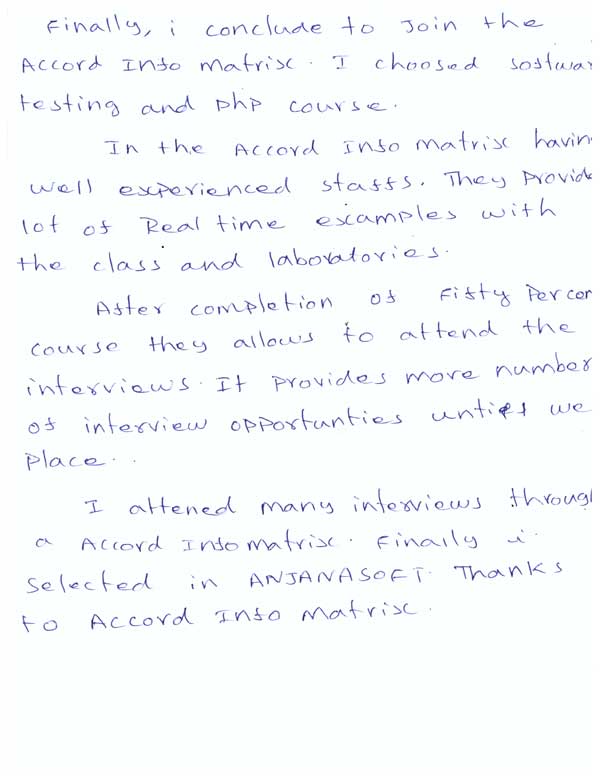 Finally, i conclude to Join the
Accord Info matrix. I choosed softwar
testing and php course.
In the Accord Info matrix havin
well experienced staffs. They provide
lot of Real time examples with
the class and laboratories.
After completion of Fifty Percen
course they allows to attend the
interviews. It provides more number
of interview opportunties we
place..
I attened many interviews through
a Accord Info matrix. Finally i
selected in ANJANASOFT. Thanks
to Accord Info Matrix.